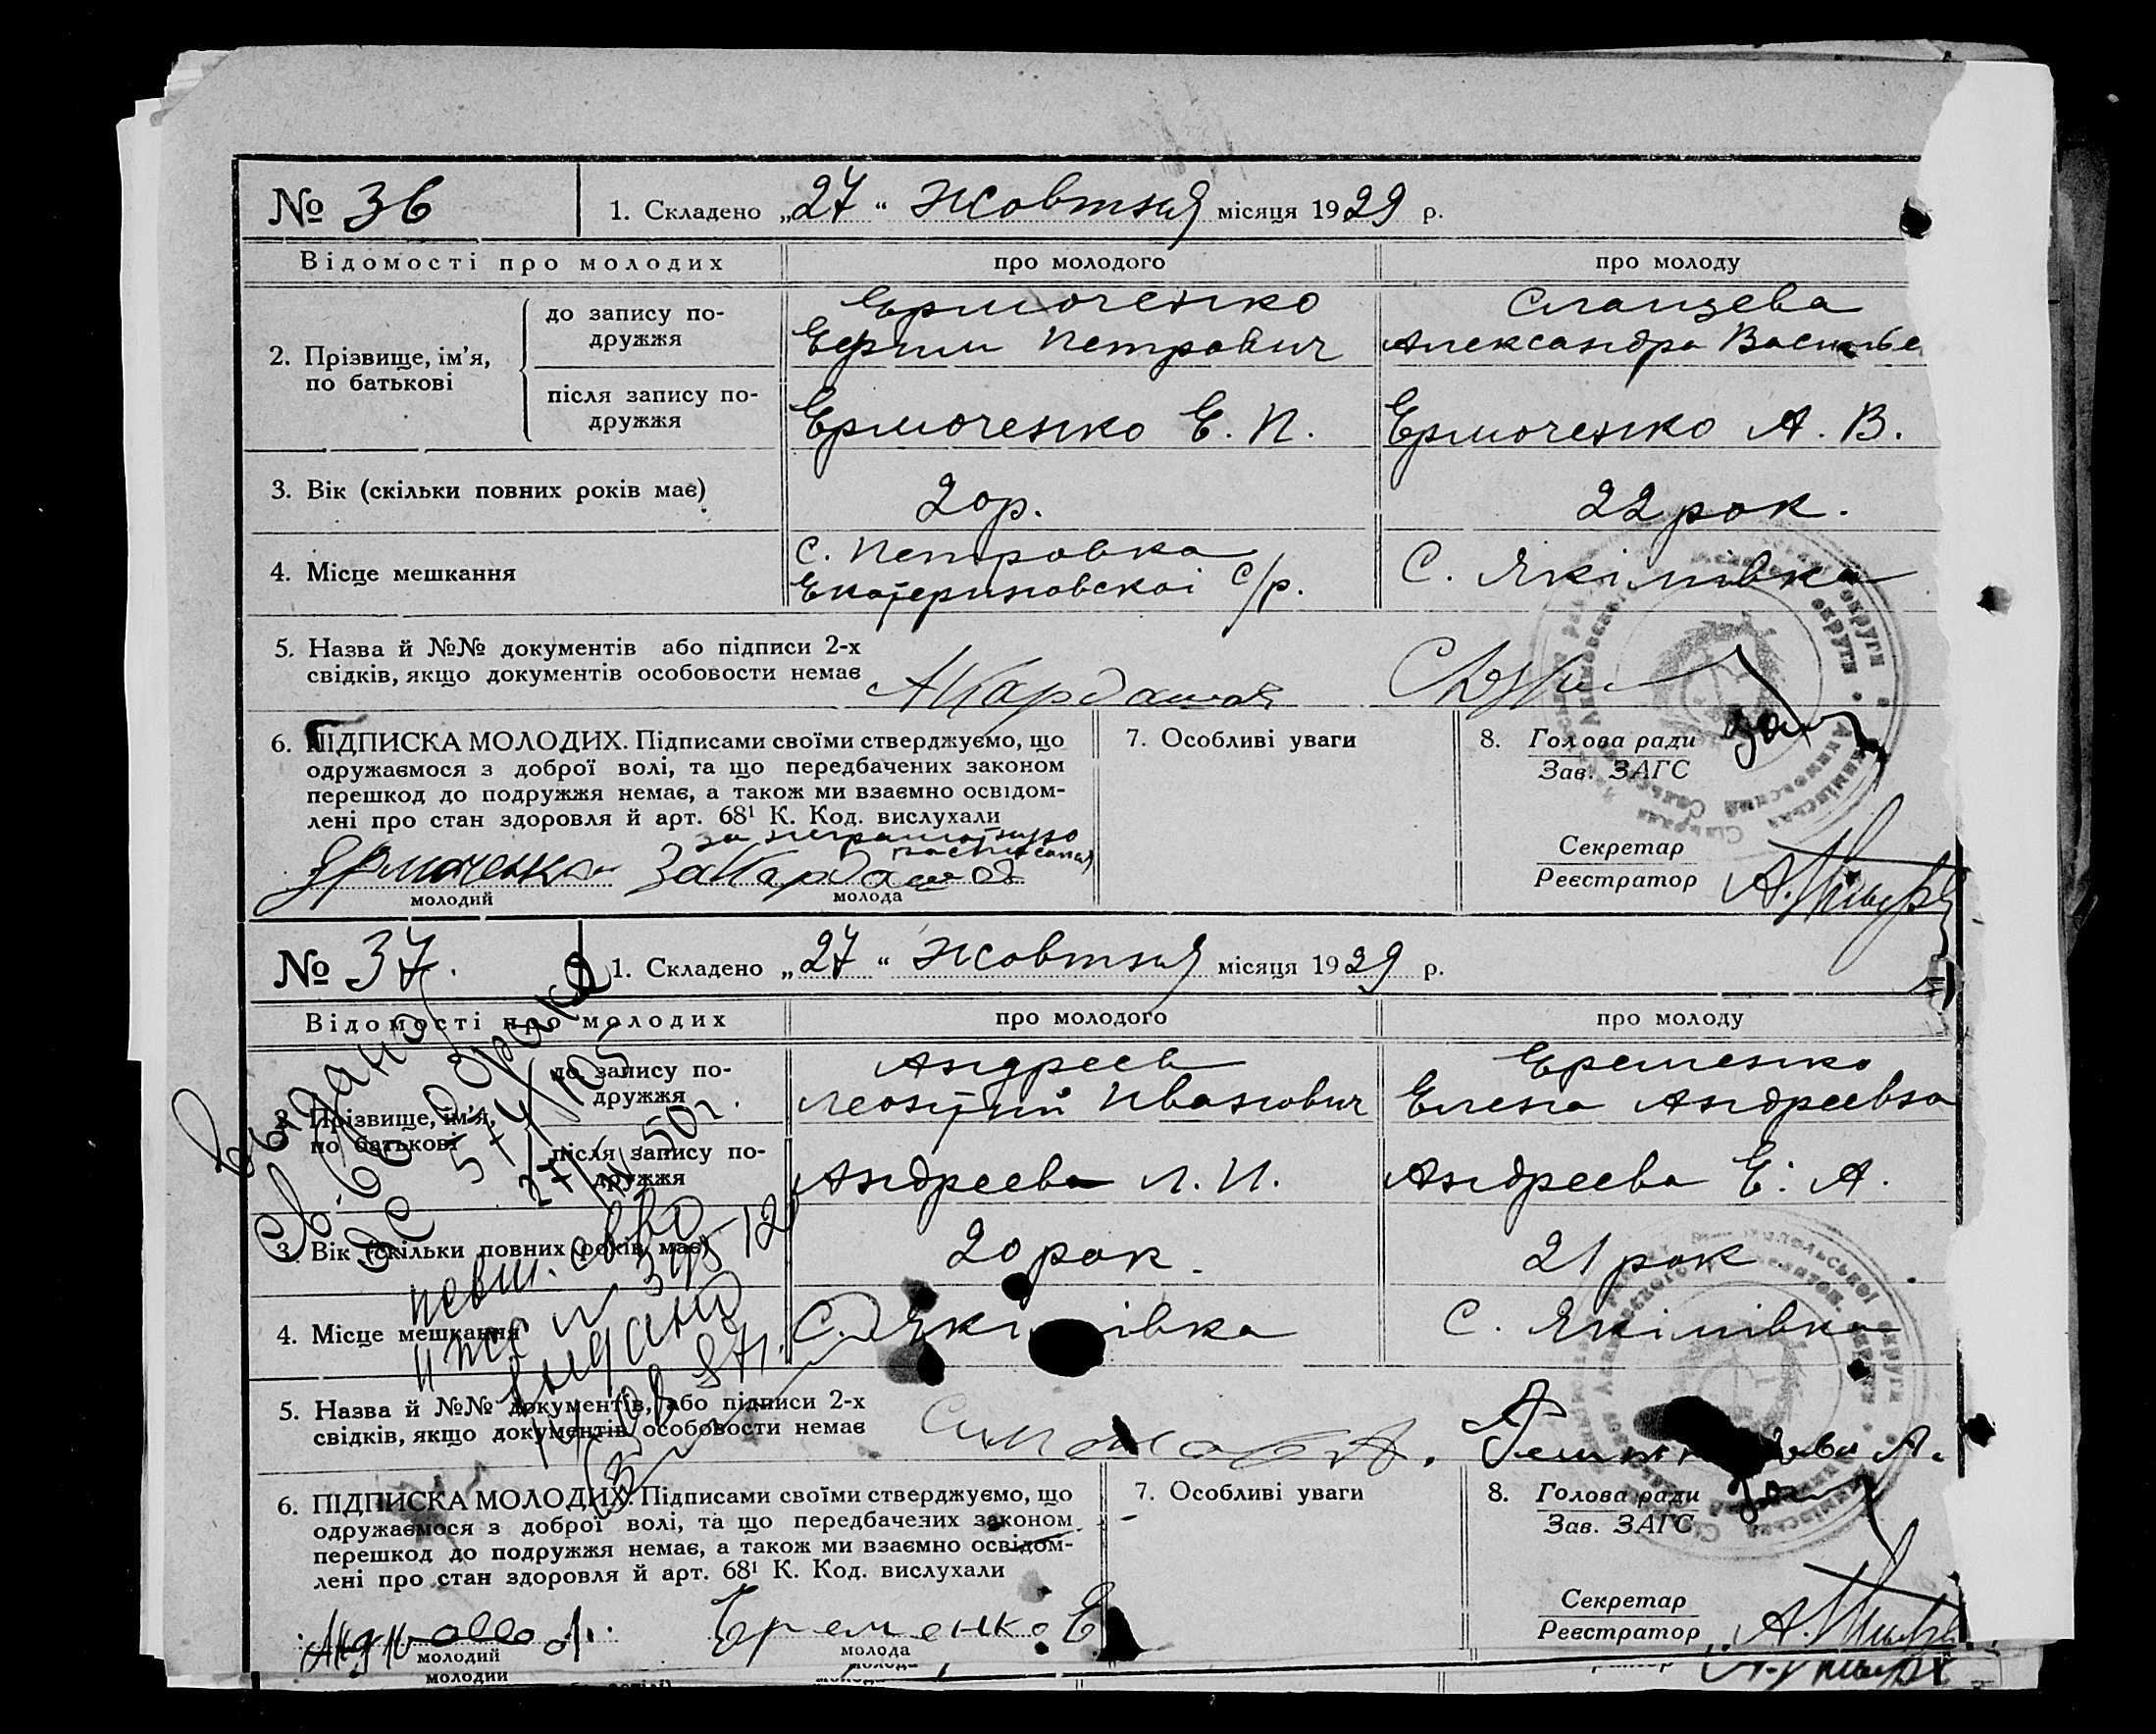 № 36
1. Складено „27“ Жовтня місяця 1929 р.
Відомості про молодих
про молодого
про молоду
2. Прізвище, ім’я, по батькові
до запису по-
дружжя
Ермоченко
Ефим Петрович
Сланцева
Александра Василье
після запису по-
дружжя
Ермоченко Е. П.
Ермоченко А. В.
3. Вік (скільки повних років має)
20р.
22 рок.
4. Місце мешкання
с. Петровка
Екатериновскоі с/р.
С. Якімівка
5. Назва й №№ документів або підписи 2-х
свідків, якщо документів особовости немає
АКардашов
6. ПІДПИСКА МОЛОДИХ. Підписами своїми стверджуємо, що
одружаємося з доброї волі, та що передбачених законом
перешкод до подружжя немає, а також ми взаємно освідом-
лені про стан здоровля й арт. 68¹ К. Код. вислухали
за неграмотную
Ярмоченко
За Кардашов
молодий
молода
7. Особливі уваги
8. Голова ради
Зав. ЗАГС
Секретар
Реєстратор
№ 37.
1. Складено „27“ Жовтня місяця 1929 р.
Відомості про молодих
про молодого
про молоду
2. Прізвище, ім’я,
по батькові
до запису по-
дружжя
Андреев
Леонтий Иванович
Еременко
Елена Андреевна
після запису по-
дружжя
Андреева Л. И.
Андреева Е. А.
3. Вік (скільки повних років має)
20 рок.
21 рок.
4. Місце мешкання
С. Якімівка
С. Якімівка
Видано
Св. о
50 г.
видано
5. Назва й №№ документів, або підписи 2-х
свідків, якщо документів особовости немає
6. ПІДПИСКА МОЛОДИХ. Підписами своїми стверджуємо, що
одружаємося з доброї волі, та що передбачених законом
перешкод до подружжя немає, а також ми взаємно освідом-
лені про стан здоровля й арт. 68¹ К. Код. вислухали
Еременко Е
молодий
молода
7. Особливі уваги
8. Голова ради
Зав. ЗАГС
Секретар
Реєстратор
молодий
молода